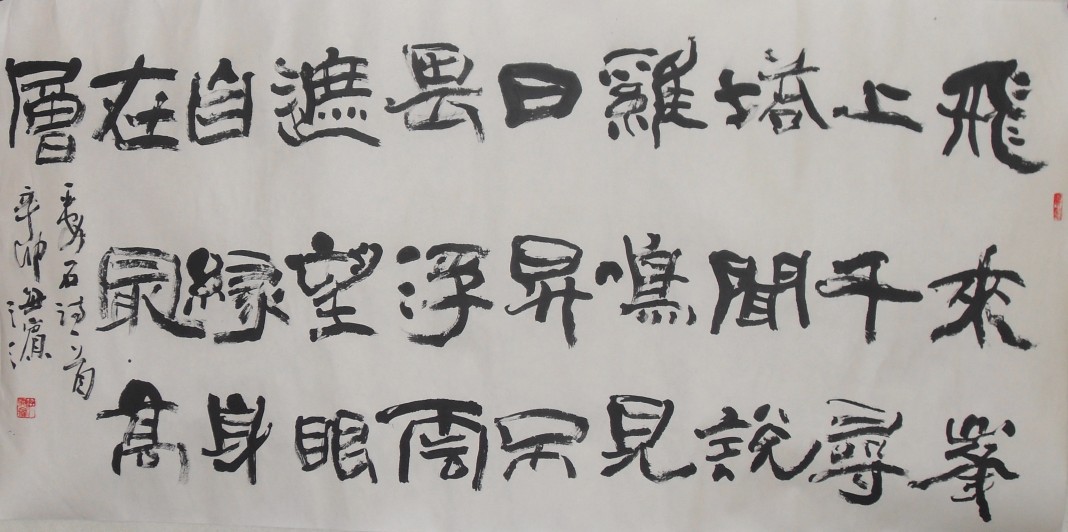 飛來峯
上千尋
塔聞說
雞鳴見
日昇不
畏浮雲
遮望眼
自緣身
在最高
層
王安石詩一首
辛卯海濱